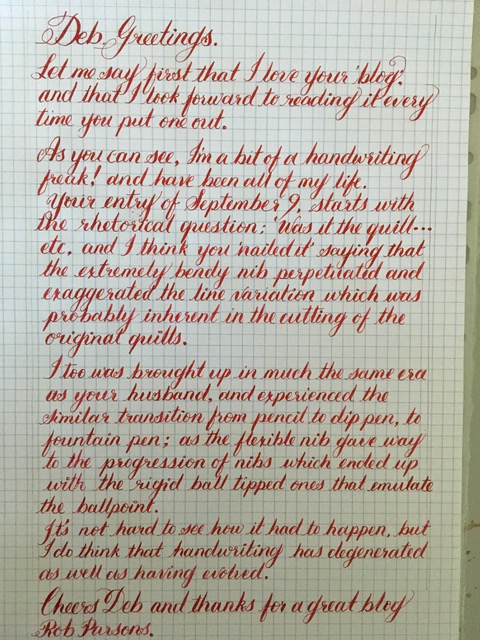 Deb, Greetings.
Let me say first that I love your 'blog'.
and that I look forward to reading it every
time you put one out.
As you can see, I'm a bit of a handwriting
freak! and have been all of my life.
Your entry of September 9, starts with
the rhetorical question; 'Was it the quill...
etc. and I think you 'nailed it' saying that
the extremely bendy nib perpetuated and
exaggerated the line variation which was
probably inherent in the cutting of the
original quills.
I too was brought up in much the same era
as your husband, and experienced the
similar transition from pencil to dip pen, to
fountain pen; as the flexible nib gave way
to the progression of nibs which ended up
with the rigid ball tipped ones that emulate
the ballpoint.
It's not hard to see how it had to happen, but
I do think that handwriting has degenerated
as well as having evolved.
Cheers Deb and thanks for a great blog
Rob Parsons.